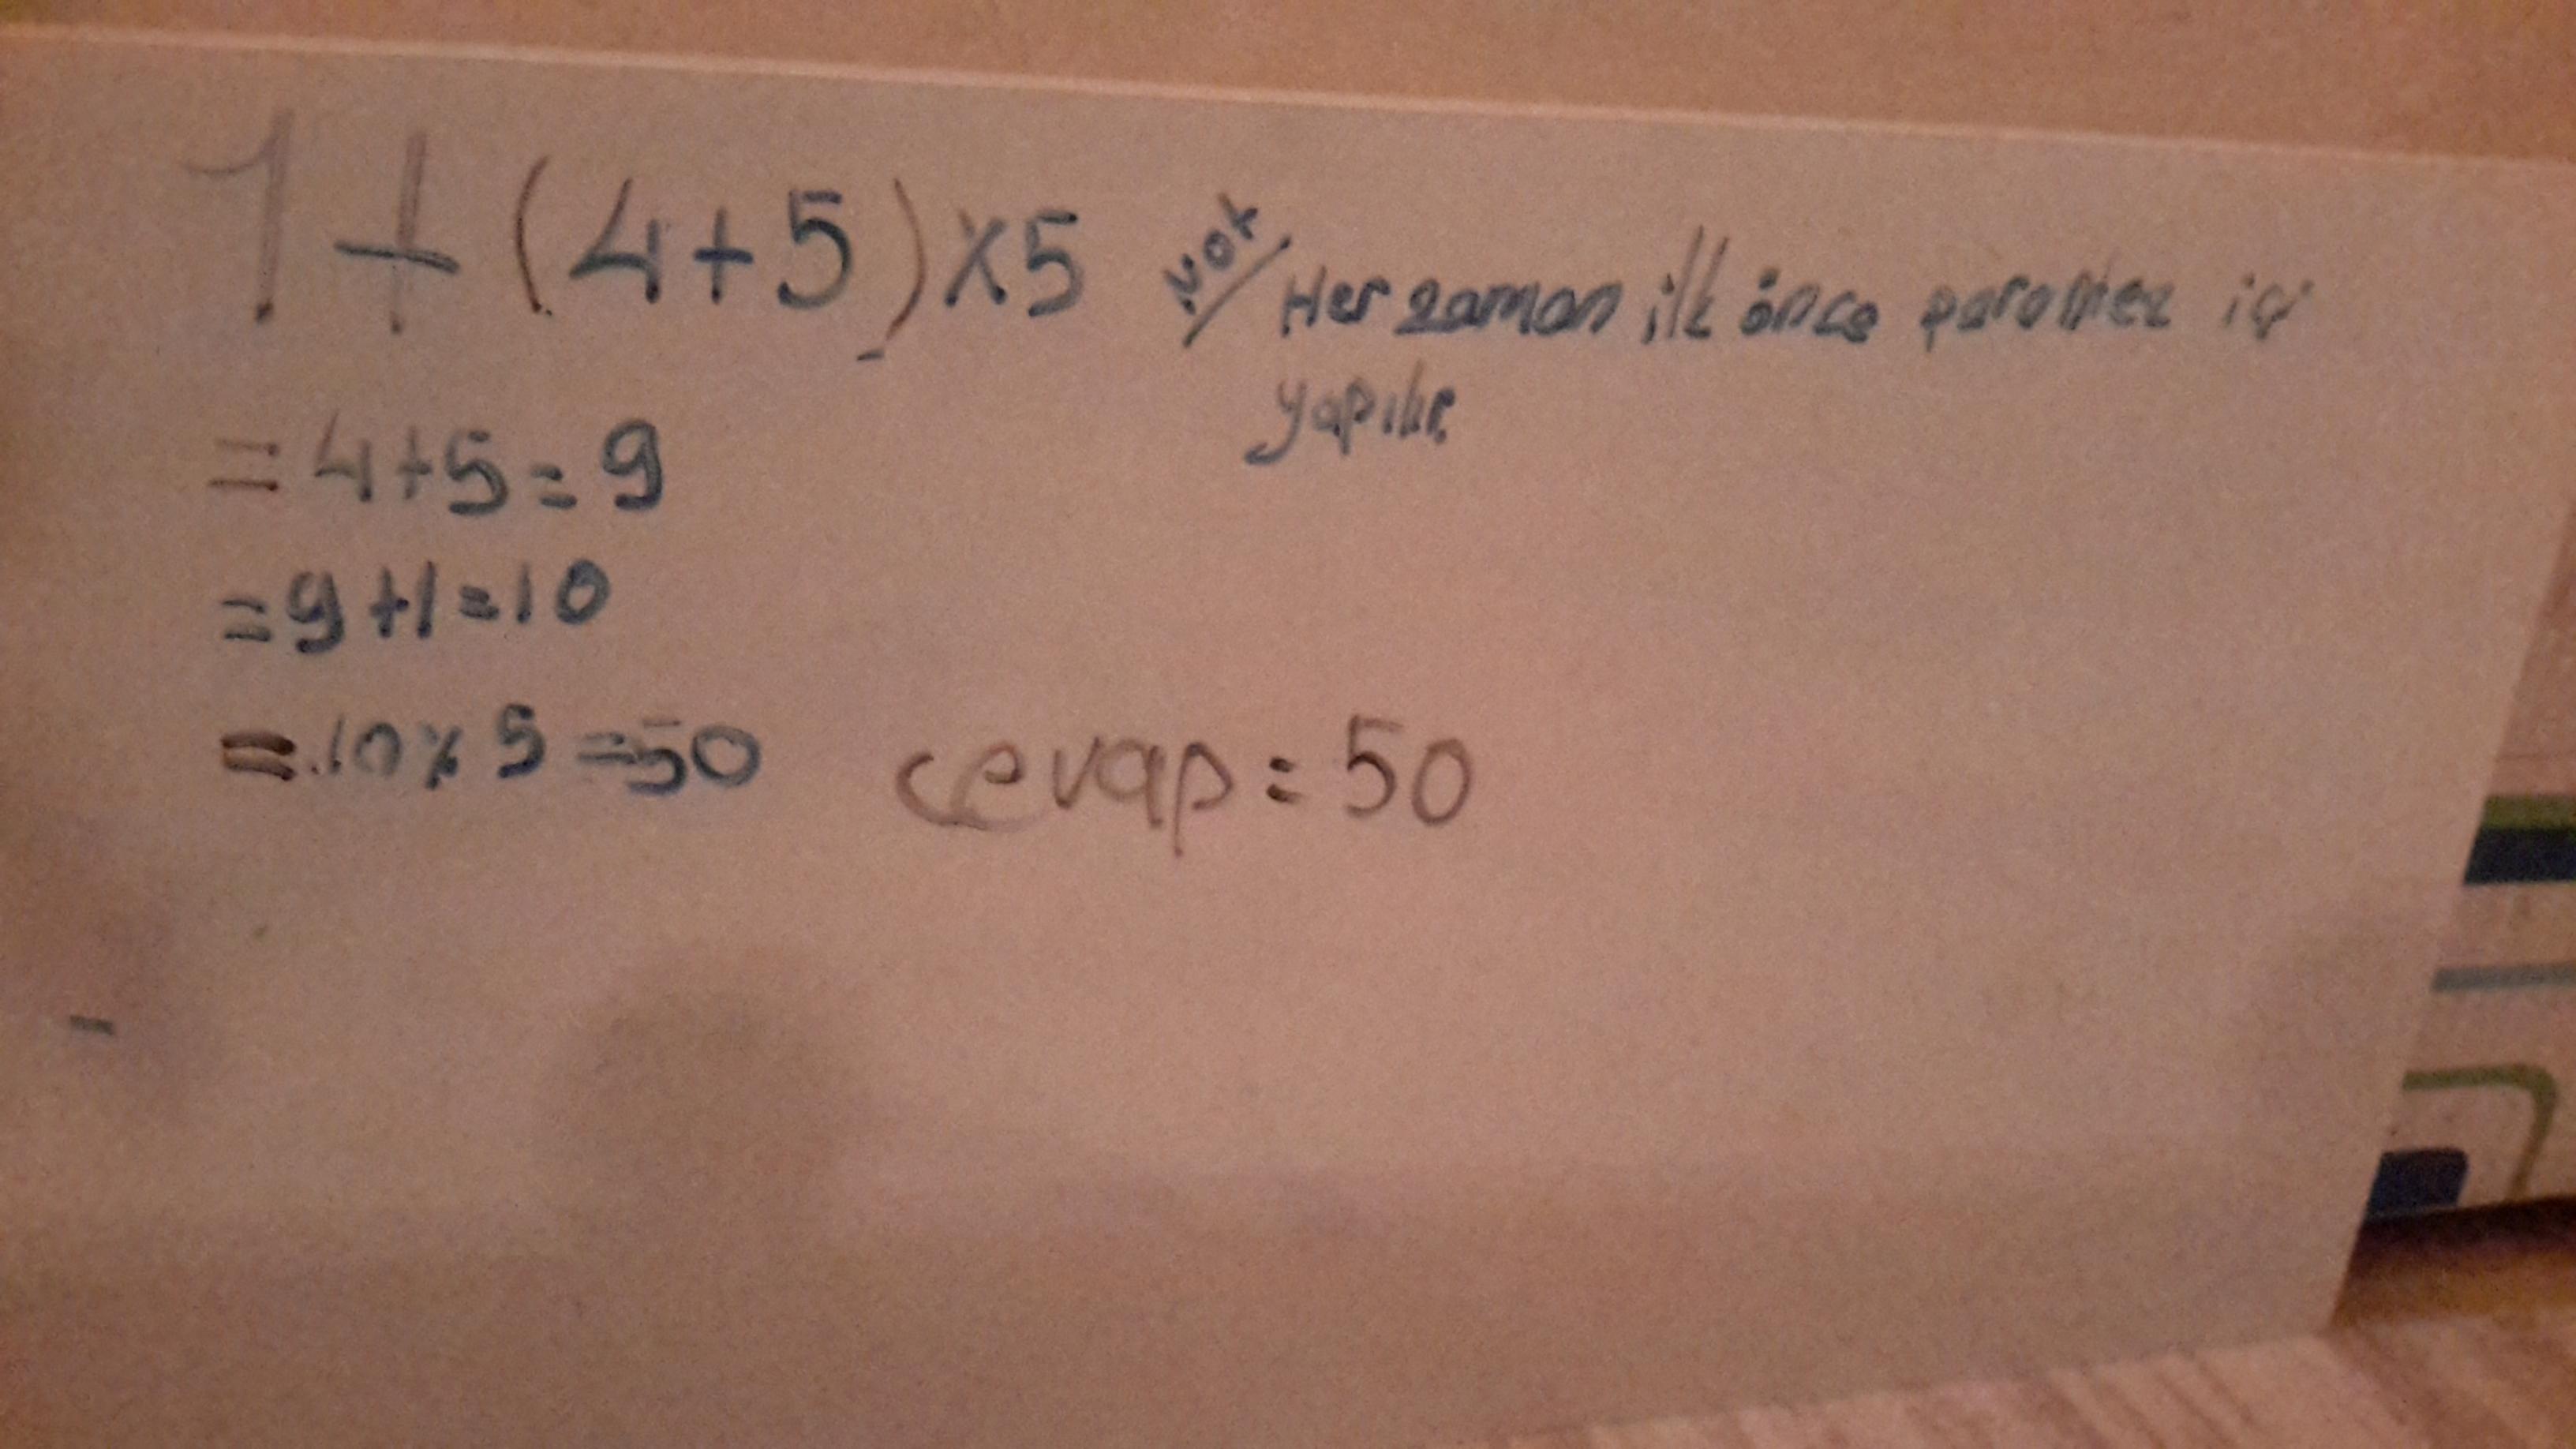 1+(4+5)×5
Not/ Her zaman ilk önce parantez içi
yapılır.
=4+5=9
=9+1=10
=10×5=50
cevap=50